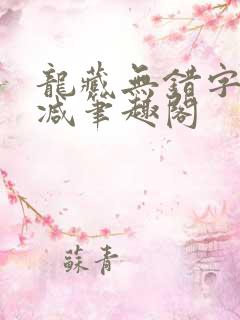 龍藏無錯字
减筆趣閣
蘇青